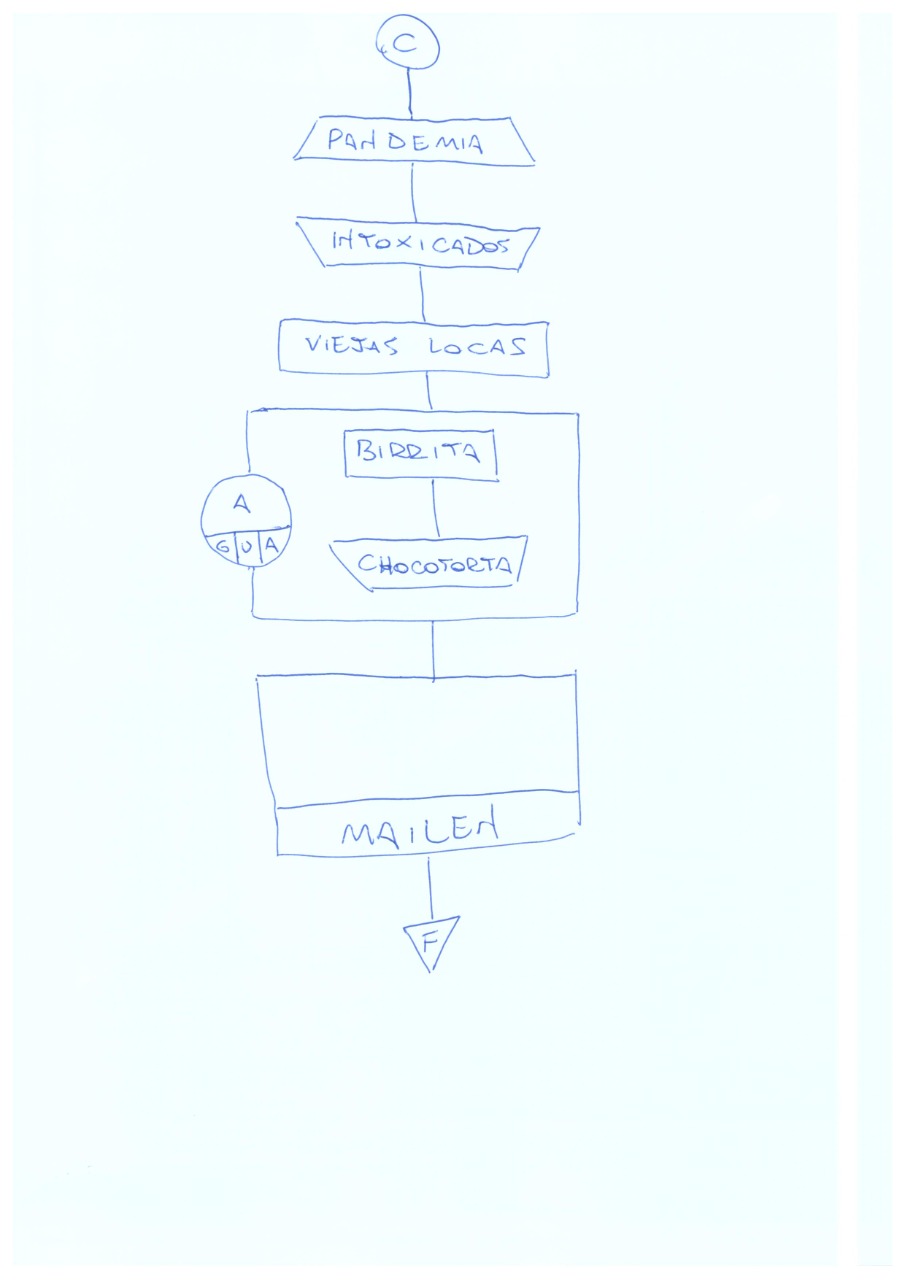 C
PANDEMIA
INTOXICADOS
VIEJAS LOCAS
BIRRITA
A
G U A
CHOCOTORTA
MAILEN
F